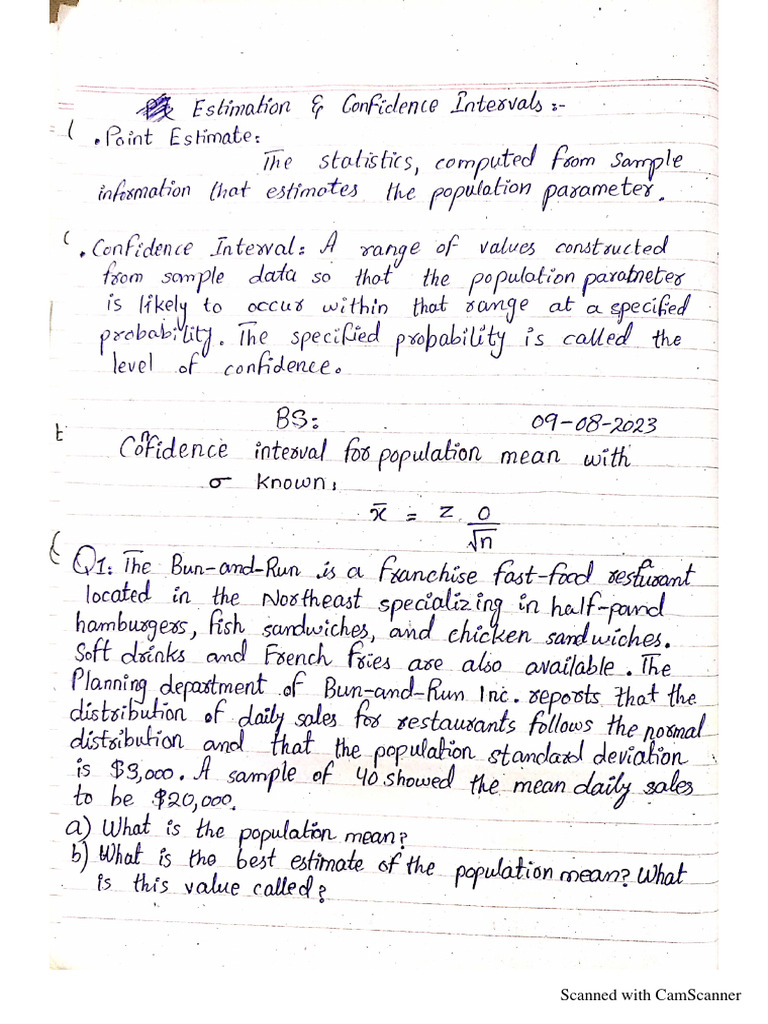 Estimation & Confidence Intervals :-
• Point Estimate:
The statistics, computed from sample
information that estimates the population parameter.
• Confidence Interval: A range of values constructed
from sample data so that the population parameter
is likely to occur within that range at a specified
probability. The specified probability is called the
level of confidence.
BS:
09-08-2023
Confidence interval for population mean with
σ known,
x̄ = z σ/√n
Q1: The Bun-and-Run is a franchise fast-food restaurant
located in the Northeast specializing in half-pound
hamburgers, fish sandwiches, and chicken sandwiches.
Soft drinks and French fries are also available. The
Planning department of Bun-and-Run Inc. reports that the
distribution of daily sales for restaurants follows the normal
distribution and that the population standard deviation
is $3,000. A sample of 40 showed the mean daily sales
to be $20,000.
a) What is the population mean?
b) What is the best estimate of the population mean? What
is this value called?
Scanned with CamScanner